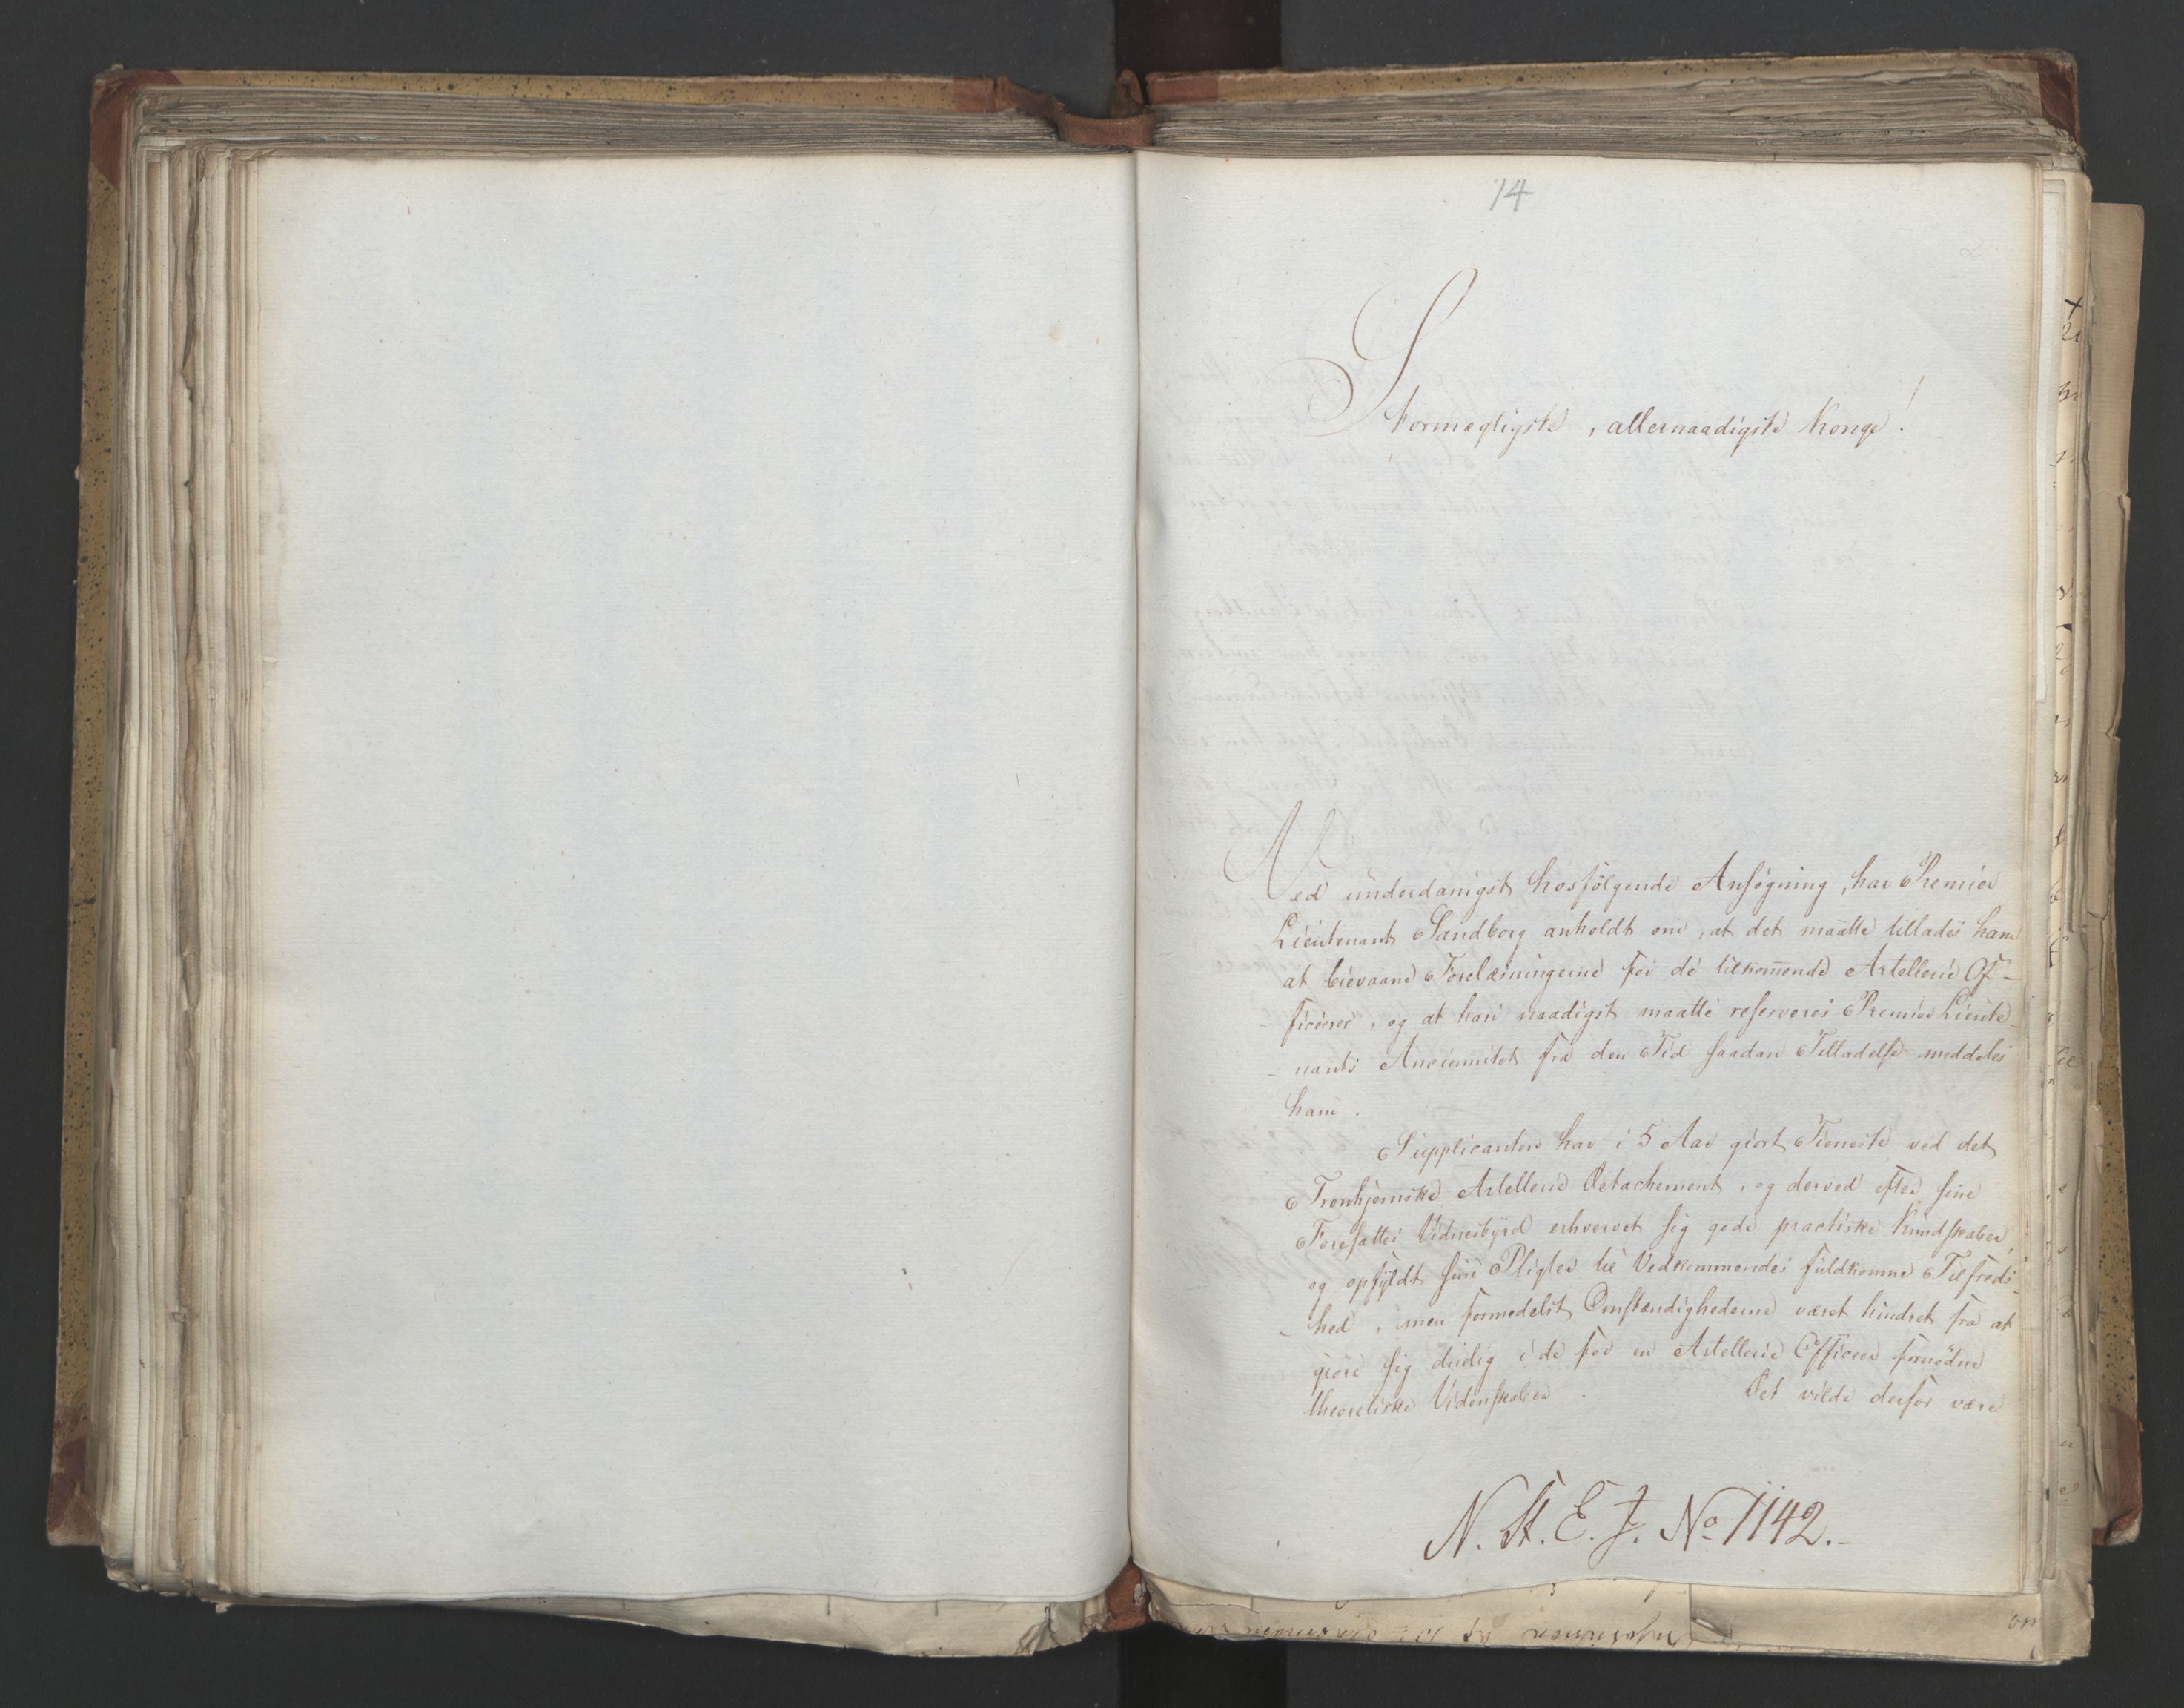 14
Stormægtigste, allernaadigste Konge!
Ved underdanigst hosfølgende Ansøgning, har Premier
Lieutenant Sandborg anholdt om, at det maatte tillades ham
at bievaane Forelæsningerne for de tilkommende Artellerie Of-
ficerer, og at ham naadigst maatte reserveres Premier Lieute-
- nants Anciennitet fra den Tid saadan Tilladelse meddeles
ham.
Supplicanten har i 5 Aar giort Tieneste ved det
Tronhjemske Artellerie Detachement, og derved efter sine
Foresattes Vidnesbyrd erhvervet sig gode practiske Kundskaber,
og opfyldt sine Pligter til Vedkommendes fuldkomne Tilfreds-
- hed, men formedelst Omstændighederne været hindret fra at
giøre sig duelig i de for en Artellerie Officeer fornødne
theoretiske Videnskaber. Det vilde derfor være
N. St. E. J. No 1142.-